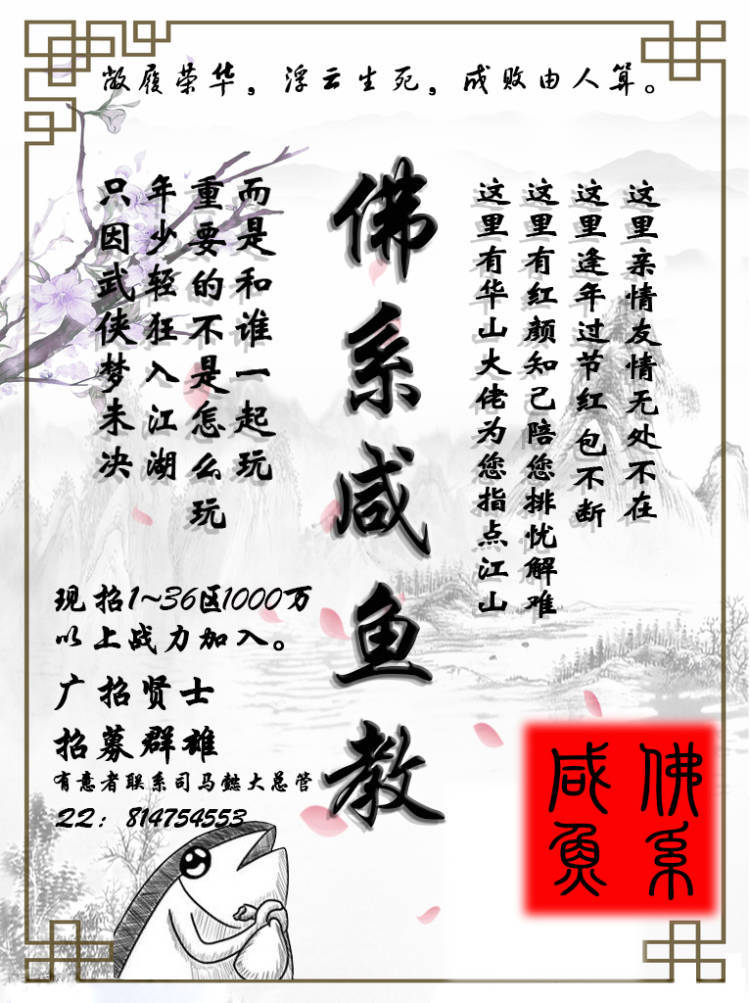 敝履荣华，浮云生死，成败由人算。
这里亲情友情无处不在
这里逢年过节红包不断
这里有红颜知己陪您排忧解难
这里有华山大佬为您指点江山
佛系咸鱼教
而是和谁一起玩
重要的不是怎么玩
年少轻狂入江湖
只因武侠梦未决
现招1~36区1000万
以上战力加入。
广招贤士
招募群雄
有意者联系司马懿大总管
QQ：814754553
佛系
咸魚